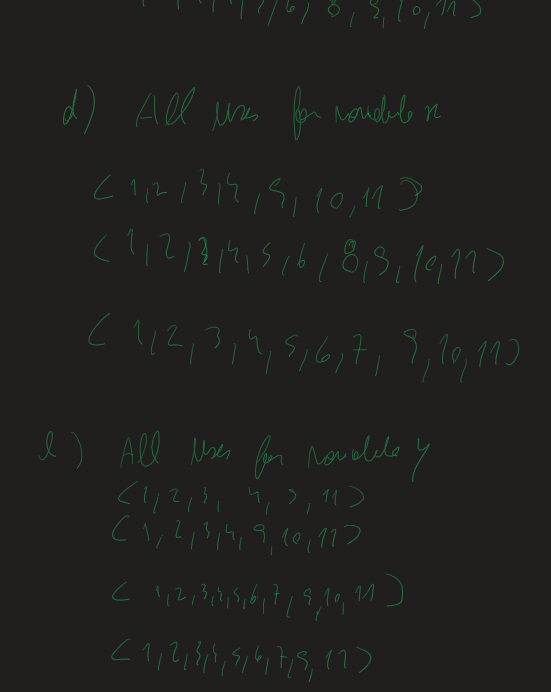 6, 8, 9, 10, 11)
d) All uses for variable x
(1, 2, 3, 4, 9, 10, 11)
(1, 2, 3, 4, 5, 6, 8, 9, 10, 11)
(1, 2, 3, 4, 5, 6, 7, 9, 10, 11)
e) All uses for variable y
(1, 2, 3, 4, 9, 11)
(1, 2, 3, 4, 9, 10, 11)
(1, 2, 3, 4, 5, 6, 7, 9, 10, 11)
(1, 2, 3, 4, 5, 6, 7, 9, 11)